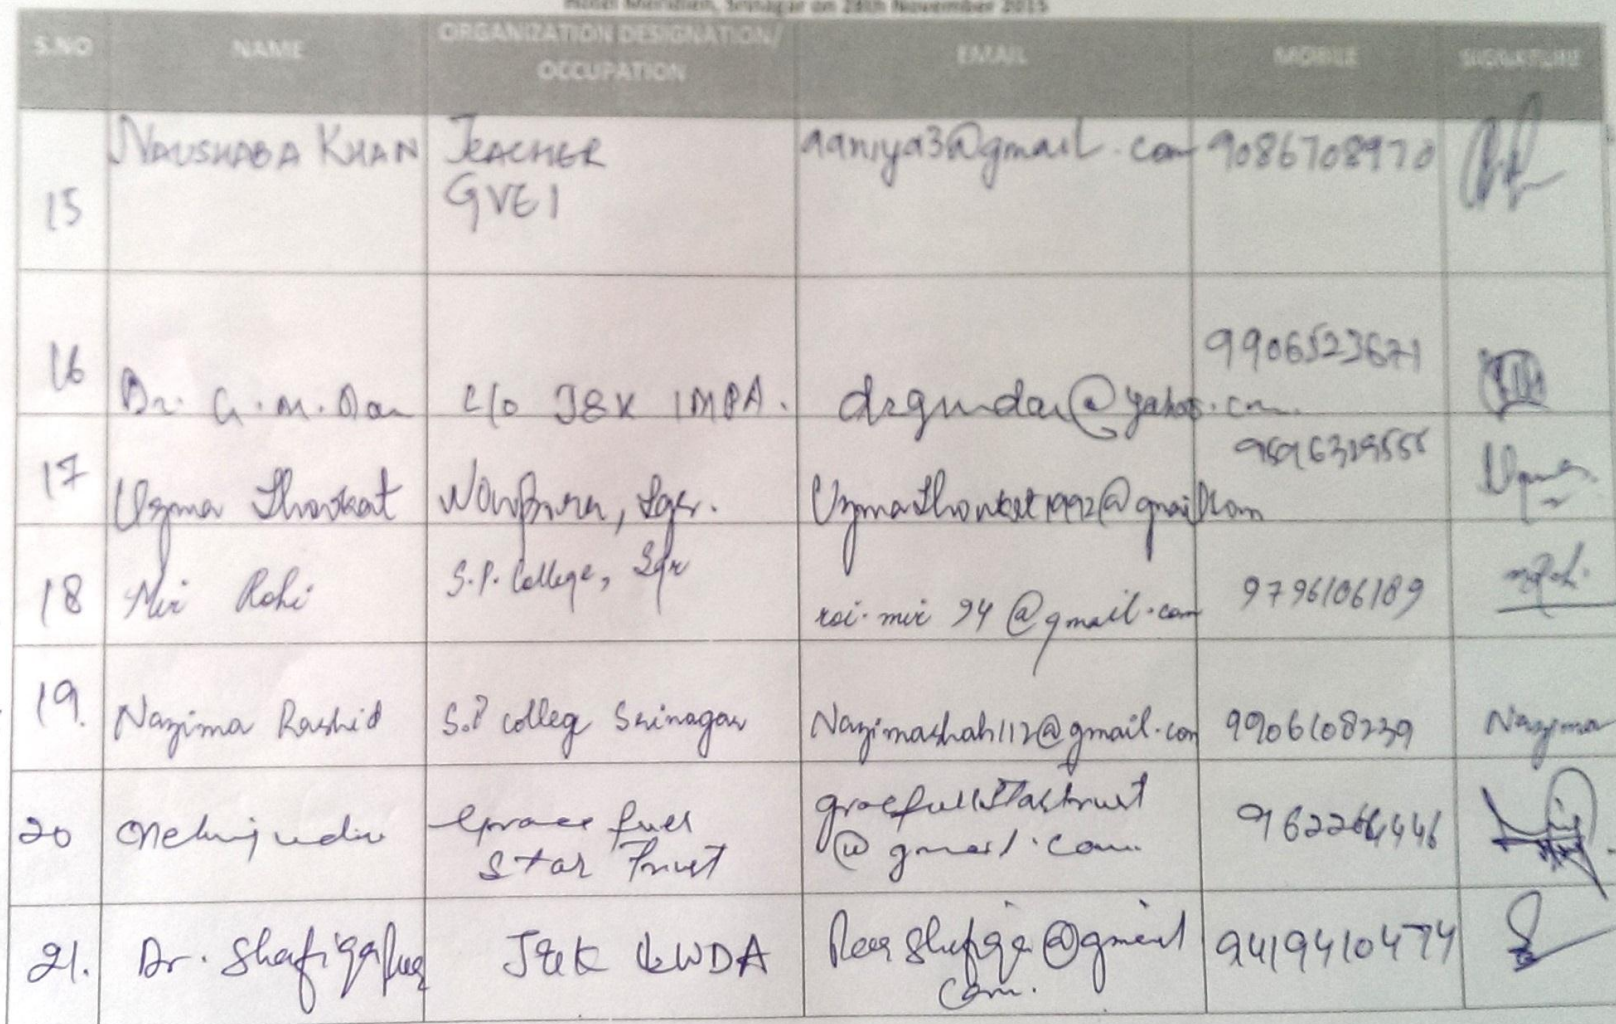 Hotel Meridien, Srinagar on 28th November 2015
S.NO NAME ORGANIZATION DESIGNATION/ OCCUPATION EMAIL MOBILE SIGNATURE
15 NAUSHABA KHAN TEACHER GVEI aaniya3@gmail.com 9086708970
16 Dr. G.M. Dar C/o J&K IMPA. drgmdar@yahoo.com 9906523671
17 Uzma Showkat Nowpora, Sgr. Uzmashowkat1992@gmail.com 9596319555 Uzma
18 Mir Rohi S.P. College, Sgr roi.mir94@gmail.com 9796106189
19. Nazima Rashid S.P colleg Srinagar Nazimashah112@gmail.com 9906108239 Nazima
20 Grace full Star Trust @gmail.com
21. Dr. Shafiqa J&K 9419410474